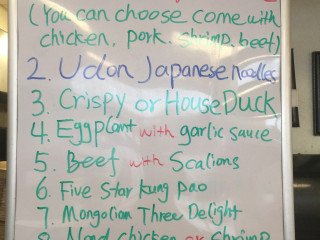 (You can choose come with
chicken, pork, shrimp, beef)
2. Udon Japanese Noodles
3. Crispy or House Duck
4. Eggplant with garlic sauce
5. Beef with Scalions
6. Five Star Kung pao
7. Mongolian Three Delight
8. chicken or Shrimp